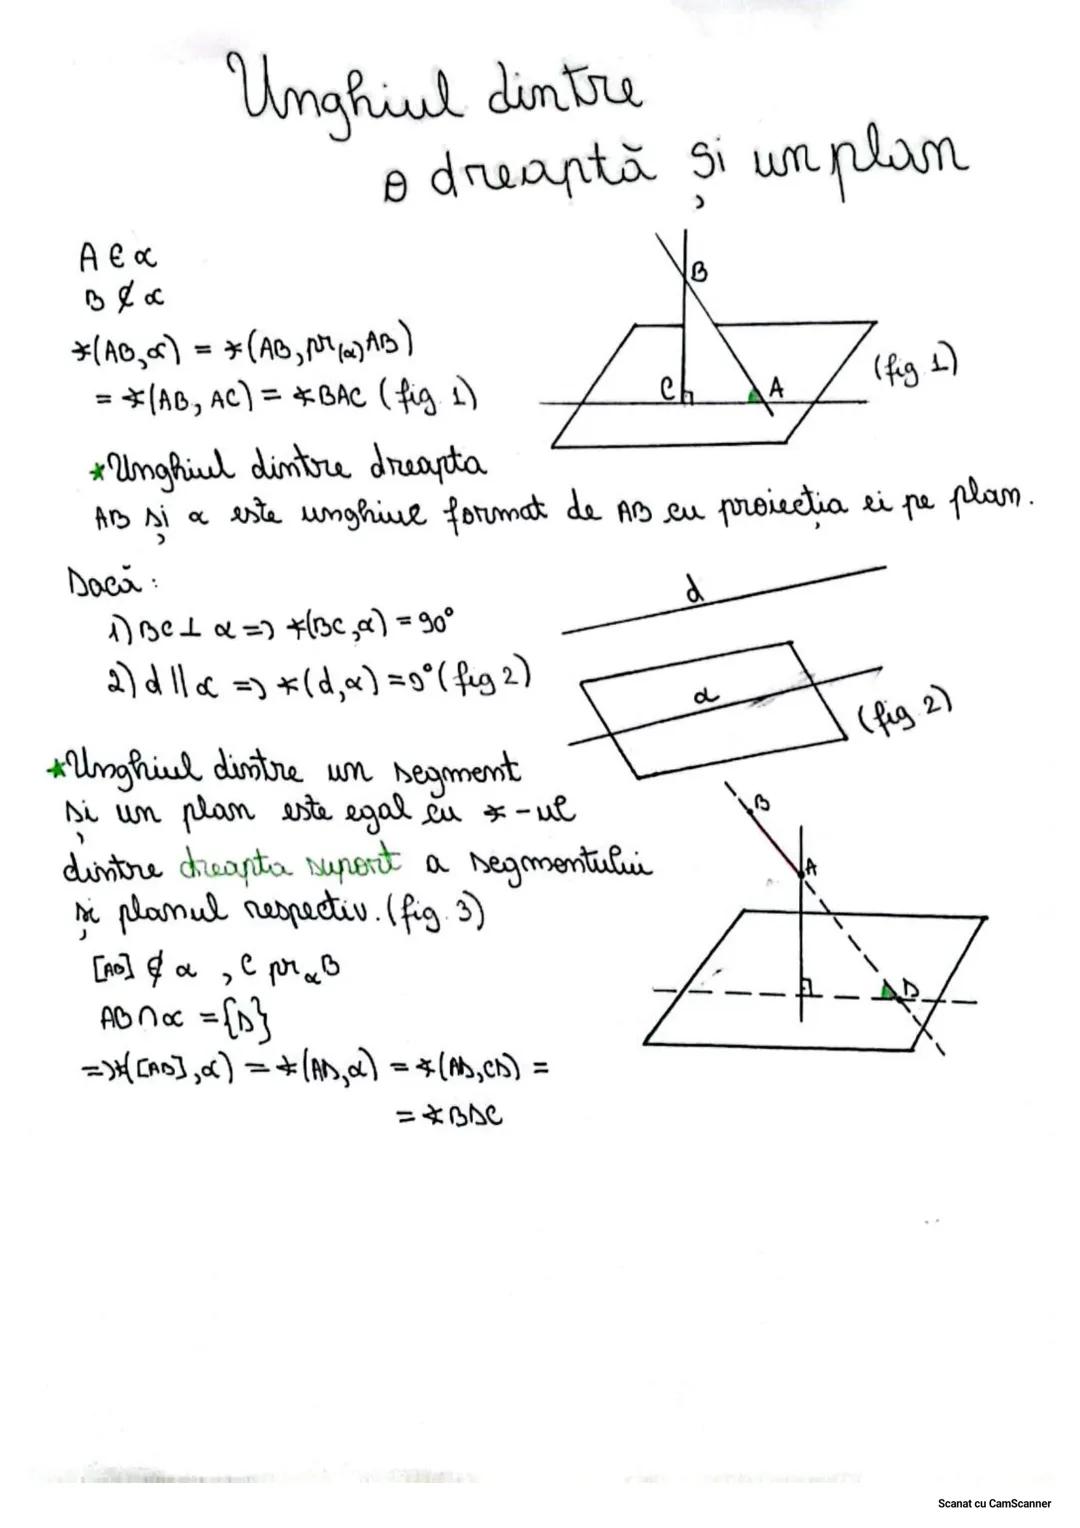 Unghiul dintre
o dreaptă și un plan
A ∈ α
B ∉ α
∢(AB,α) = ∢(AB, pr(α)AB)
= ∢(AB, AC) = ∢BAC (fig. 1)
B
C
A
(fig 1)
*Unghiul dintre dreapta
AB și α este unghiul format de AB cu proiecția ei pe plan.
Dacă:
1) BC ⊥ α => ∢(BC,α) = 90°
2) d || α => ∢(d,α) = 0° (fig 2)
d
α
(fig. 2)
*Unghiul dintre un segment
și un plan este egal cu ∢-ul
dintre dreapta suport a segmentului
și planul respectiv. (fig. 3)
[AB] ⊄ α , C pr α B
AB ∩ α = {D}
=> ∢([AB],α) = ∢(AD,α) = ∢(AD,CD) =
= ∢BDC
B
A
D
Scanat cu CamScanner